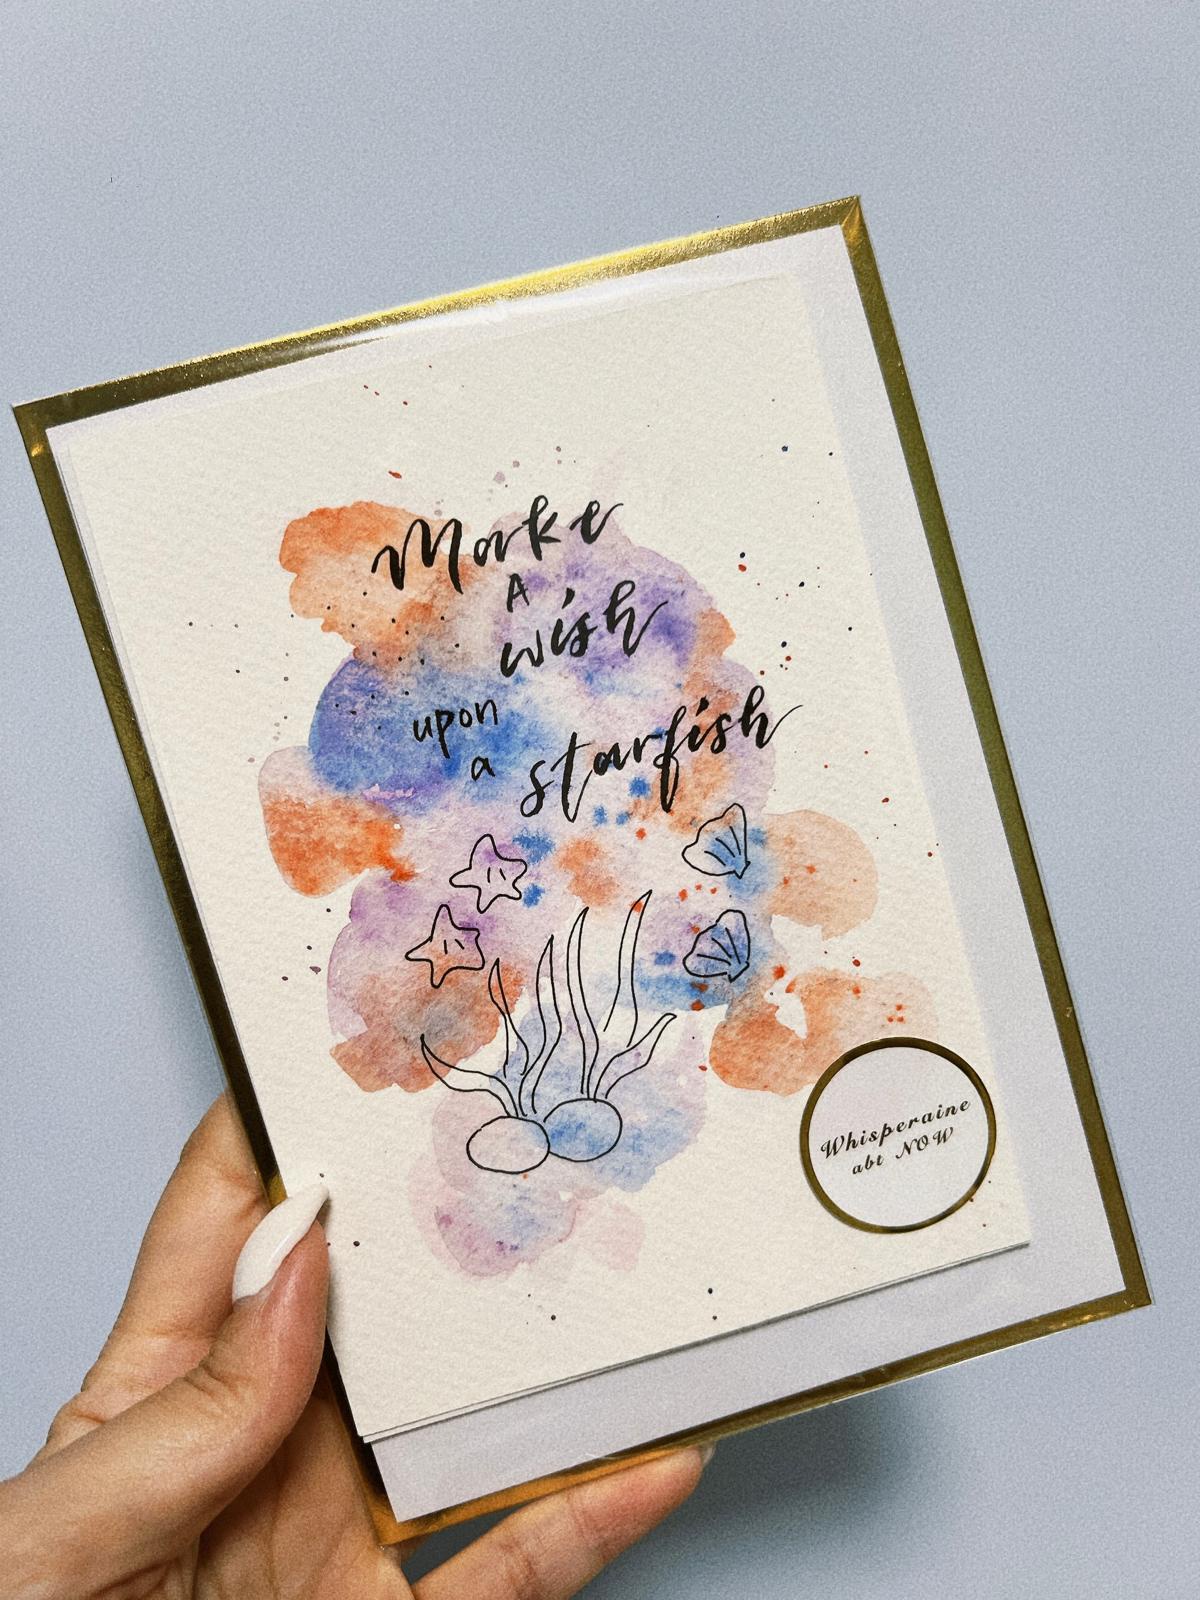 Make
A
wish
upon
a starfish
Whisperaine
abt NOW